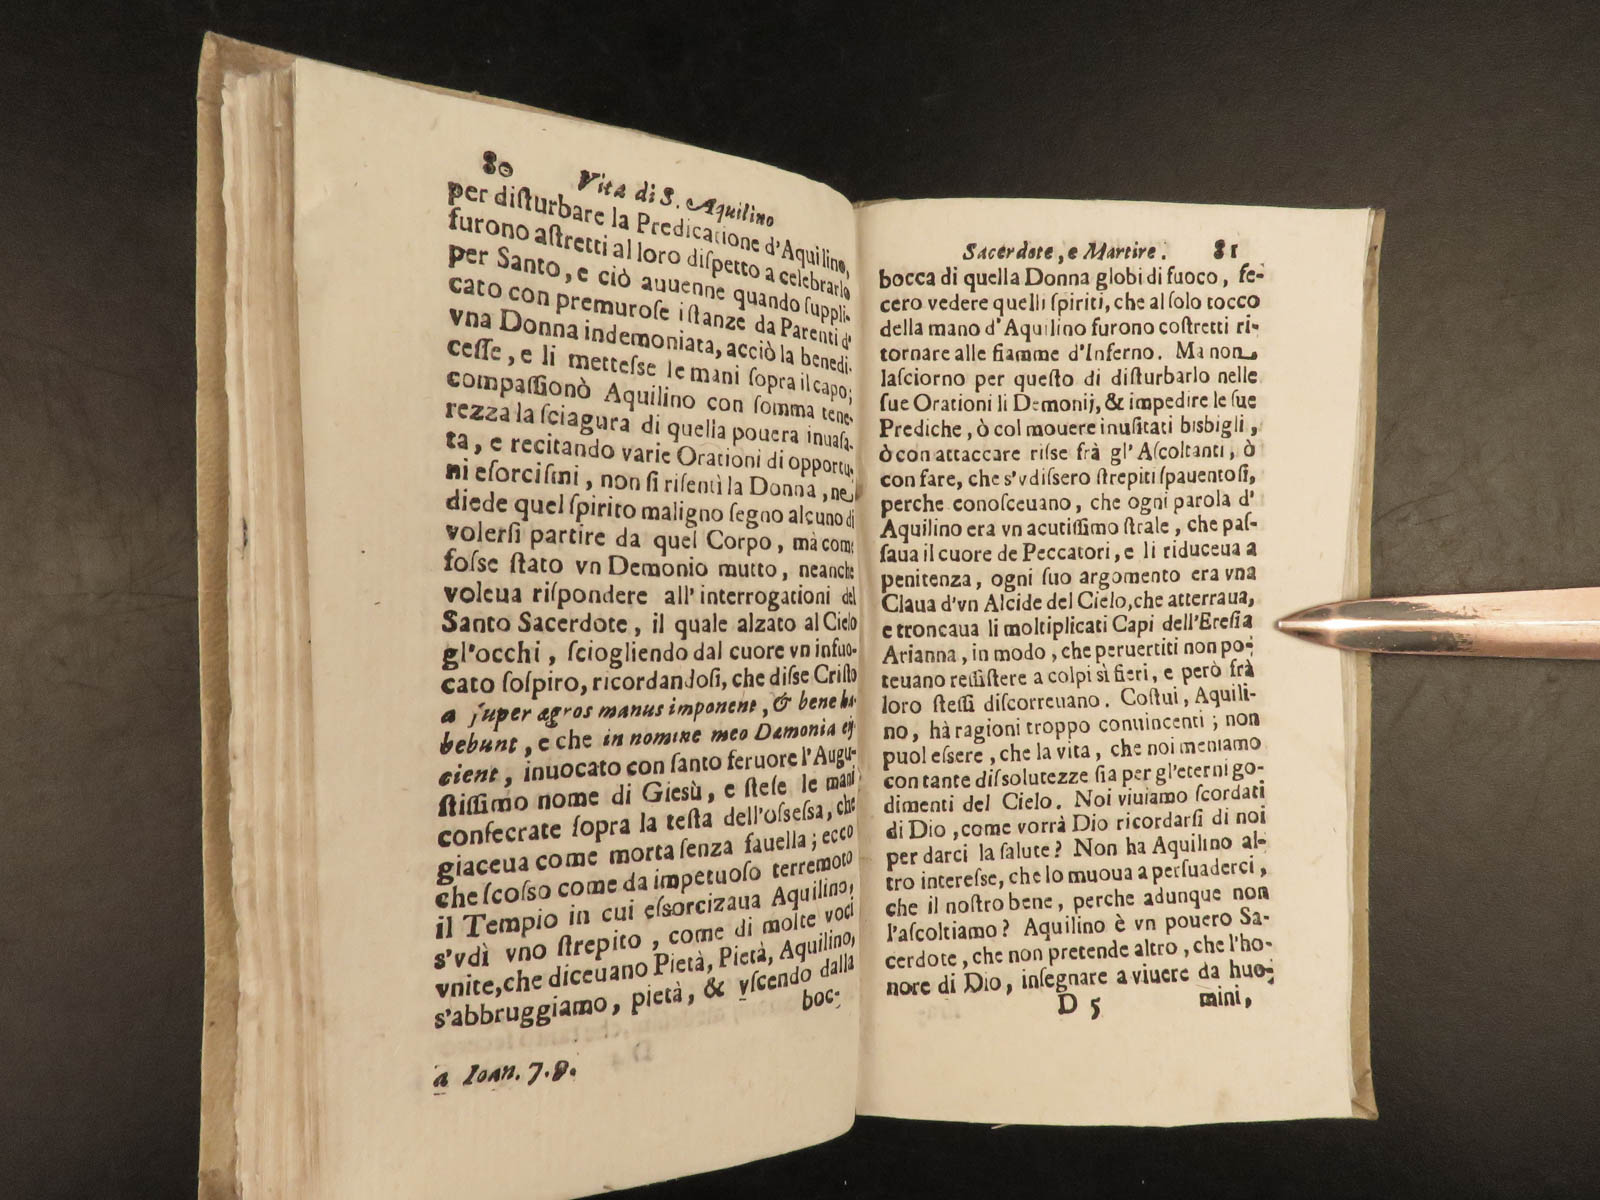 80 Vita di S. Aquilino
per diſturbare la Predicatione d'Aquilino,
furono aſtretti al loro diſpetto a celebrarlo
per Santo, e ciò auuenne quando ſuppli-
cato con premuroſe iſtanze da Parenti d'
vna Donna indemoniata, acciò la benedi-
ceſſe, e li metteſse le mani ſopra il capo;
compaſſionò Aquilino con ſomma tene-
rezza la ſciagura di quella pouera inuaſa-
ta, e recitando varie Orationi di opportu-
ni eſorciſini, non ſi riſentì la Donna, ne
diede quel ſpirito maligno ſegno alcuno di
volerſi partire da quel Corpo, mà come
foſse ſtato vn Demonio mutto, neanche
voleua riſpondere all'interrogationi del
Santo Sacerdote, il quale alzato al Cielo
gl'occhi, ſciogliendo dal cuore vn infuo-
cato ſoſpiro, ricordandoſi, che diſse Criſto
a ſuper ægros manus imponent, & bene ha-
bebunt, e che in nomine meo Dæmonia ej-
cient, inuocato con ſanto feruore l'Augu-
ſtiſſimo nome di Giesù, e ſteſe le mani
conſecrate ſopra la teſta dell'oſseſsa, che
giaceua come morta ſenza fauella; ecco
che ſcoſso come da impetuoſo terremoto
il Tempio in cui eſsorcizaua Aquilino,
s'vdì vno ſtrepito, come di molte voci
vnite, che diceuano Pietà, Pietà, Aquilino,
s'abbruggiamo, pietà, & vſcendo dalla
boc-
a Ioan. 7. 8.
Sacerdote, e Martire. 81
bocca di quella Donna globi di fuoco, fe-
cero vedere quelli ſpiriti, che al ſolo tocco
della mano d'Aquilino furono coſtretti ri-
tornare alle fiamme d'Inferno. Ma non
laſciorno per queſto di diſturbarlo nelle
ſue Orationi li Demonij, & impedire le ſue
Prediche, ò col mouere inuſitati bisbigli,
ò con attaccare riſse frà gl'Aſcoltanti, ò
con fare, che s'vdiſsero ſtrepiti ſpauentoſi,
perche conoſceuano, che ogni parola d'
Aquilino era vn acutiſſimo ſtrale, che paſ-
ſaua il cuore de Peccatori, e li riduceua a
penitenza, ogni ſuo argomento era vna
Claua d'vn Alcide del Cielo, che atterraua,
e troncaua li moltiplicati Capi dell'Ereſia
Arianna, in modo, che peruertiti non po-
teuano reſſiſtere a colpi sì fieri, e però frà
loro ſteſſi diſcorreuano. Coſtui, Aquili-
no, hà ragioni troppo conuincenti; non
puol eſsere, che la vita, che noi meniamo
con tante diſsolutezze ſia per gl'eterni go-
dimenti del Cielo. Noi viuiamo ſcordati
di Dio, come vorrà Dio ricordarſi di noi
per darci la ſalute? Non ha Aquilino al-
tro intereſse, che lo muoua a perſuaderci,
che il noſtro bene, perche adunque non
l'aſcoltiamo? Aquilino è vn pouero Sa-
cerdote, che non pretende altro, che l'ho-
nore di Dio, inſegnare a viuere da huo-
D 5 mini,